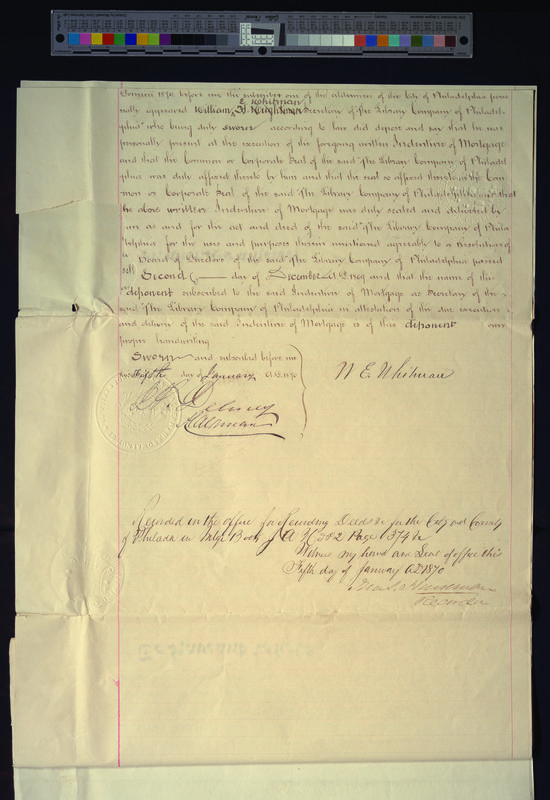 Domini 1870 before me the subscriber one of the aldermen of the City of Philadelphia perso
nally appeared William E Whitman Secretary of The Library Company of Philadel-
phia who being duly sworn according to law did depose and say that he was
personally present at the execution of the foregoing written Indenture of Mortgage
and that the Common or Corporate Seal of the said The Library Company of Philadel
phia was duly affixed thereto by him and that the seal so affixed thereto is the Com
mon or Corporate Seal of the said The Library Company of Philadelphia and that
the above written Indenture of Mortgage was duly sealed and delivered by
him as and for the act and deed of the said The Library Company of Phila
delphia for the uses and purposes therein mentioned agreeably to a Resolution of
Board of Directors of the said The Library Company of Philadelphia passed
Second day of December A.D. 1869 and that the name of this
deponent subscribed to the said Indenture of Mortgage as Secretary of the
said The Library Company of Philadelphia in attestation of the due execution
and delivery of the said Indenture of Mortgage is of this deponent own
proper handwriting
Sworn and subscribed before me
this Fifth day of January A.D. 1870
W E Whitman
Alderman
Recorded in the office for Recording Deeds &c in the City and County
of Philada in Mtge Book J A H 502 Page 374 &c
Witness my hand and Seal of office this
Fifth day of January AD 1870
Recorder